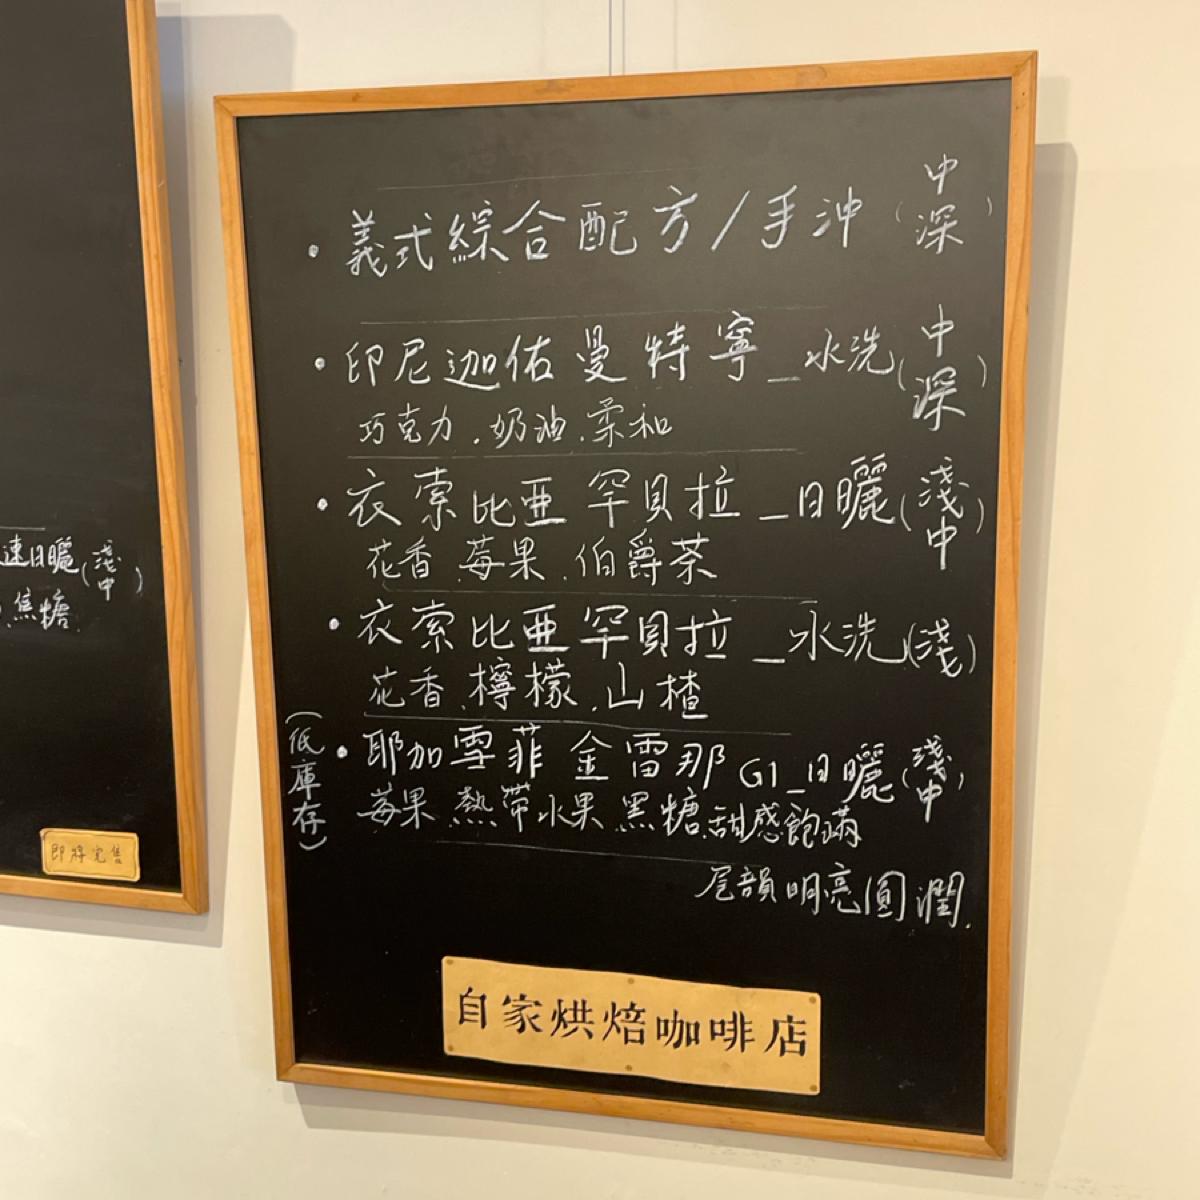 速日曬(淺中)
焦糖
即將完售
・義式綜合配方/手沖(中深)
・印尼迦佑曼特寧_水洗(中深)
巧克力.奶油.柔和
・衣索比亞罕貝拉_日曬(淺中)
花香.莓果.伯爵茶
・衣索比亞罕貝拉_水洗(淺)
花香.檸檬.山楂
(低庫存)
・耶加雪菲金雷那G1_日曬(淺中)
莓果.熱帶水果.黑糖.甜感飽滿
尾韻明亮圓潤.
自家烘焙咖啡店